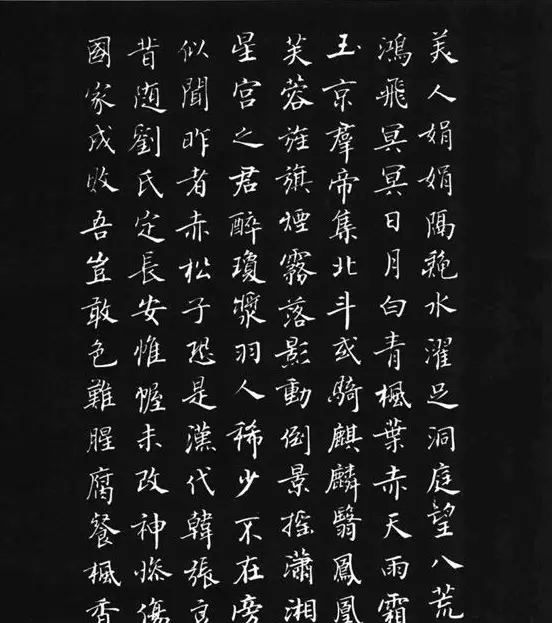 美人娟娟隔穐水濯足洞庭望八荒
鴻飛冥冥日月白青楓葉赤天雨霜
玉京羣帝集北斗或騎麒麟翳鳳凰
芙蓉旌旗煙霧落影動倒景摇瀟湘
星宮之君醉瓊漿羽人稀少不在旁
似聞昨者赤松子恐是漢代韓張良
昔随劉氏定長安帷幄未改神慘傷
國家成敗吾豈敢色難腥腐餐楓香